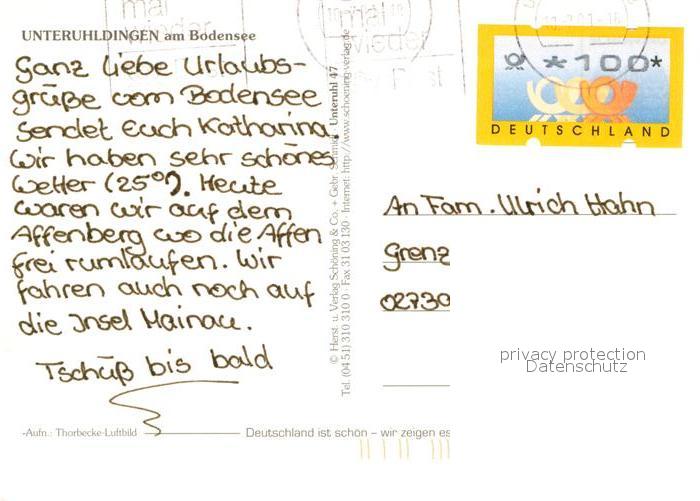 mal
wieder
mal
wieder
UNTERUHLDINGEN am Bodensee
Ganz liebe Urlaubs-
grüße vom Bodensee
sendet Euch Katharina.
Wir haben sehr schönes
Wetter (25°). Heute
waren wir auf dem
Affenberg wo die Affen
frei rumlaufen. Wir
fahren auch noch auf
die Insel Mainau.
Tschüß bis bald
-Aufn.: Thorbecke-Luftbild
Deutschland ist schön – wir zeigen es
© Herst. u. Verlag Schöning & Co. + Gebr. Schmidt · Unteruhl 47
Tel. (04 51) 310 310 0 · Fax 31 03 130 · Internet: http://www.schoening-verlag.de
*100*
DEUTSCHLAND
An Fam. Ulrich Hahn
Grenz
02730
privacy protection
Datenschutz